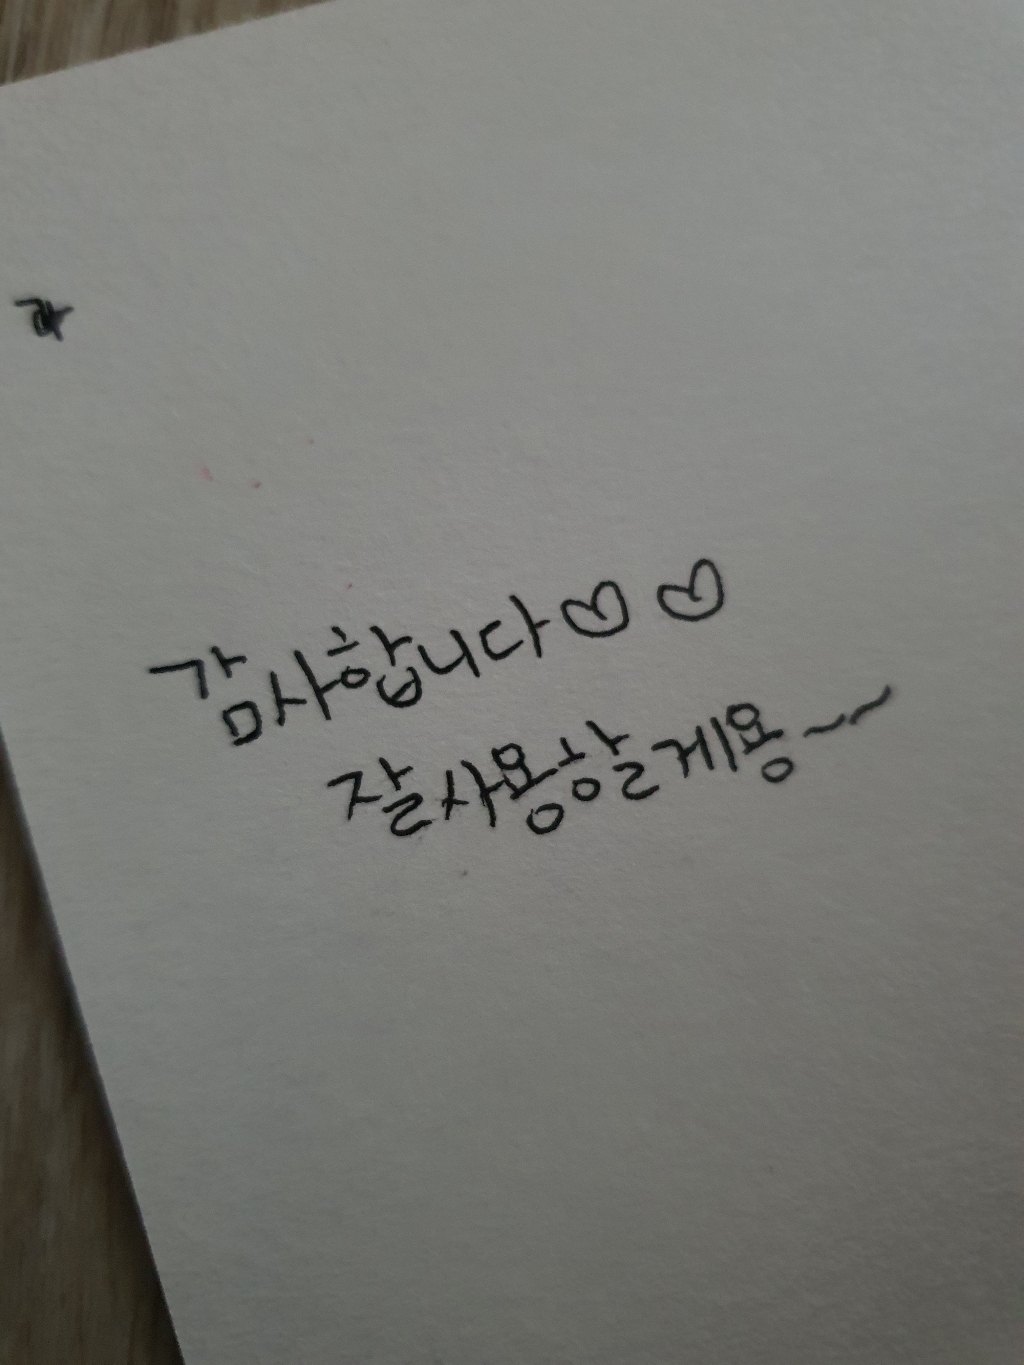 감사합니다♡♡
잘사용할게용~~